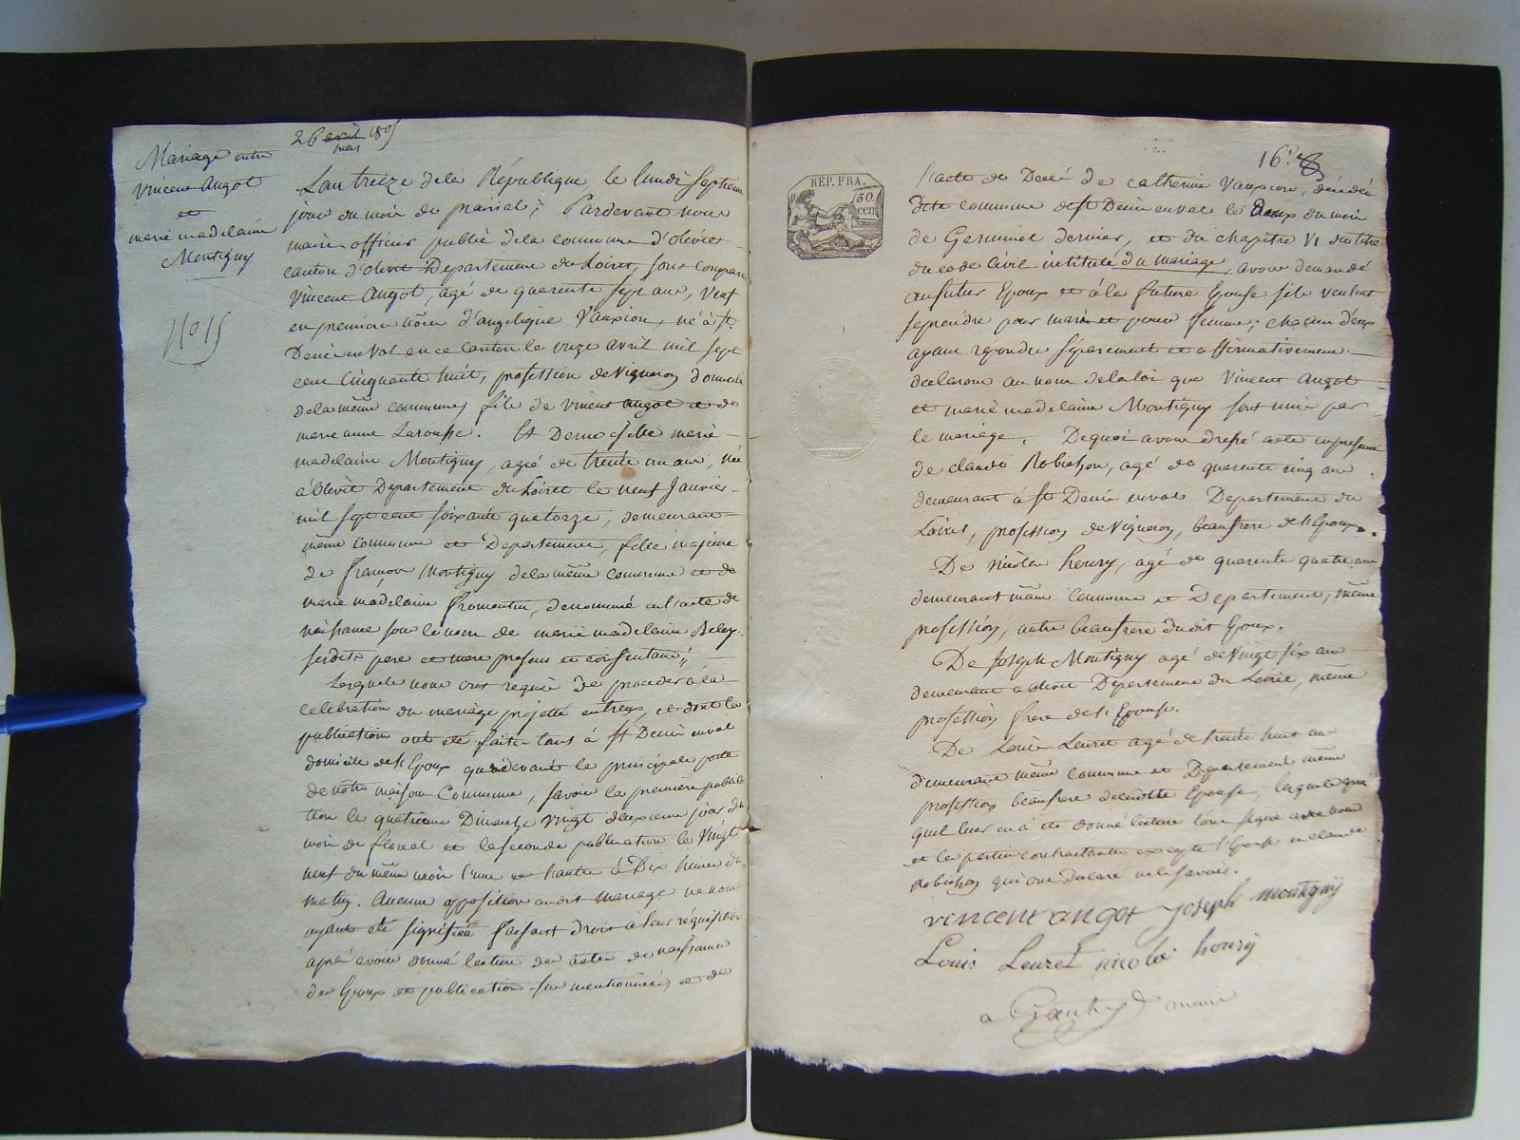 26 avril 1805
mai
Mariage entre
Vincent Angot
et
marie madelaine
Montigny
N° 15
L'an treize dela République le lundi Septieme
jour du mois de prairial, Pardevant nous
maire officier public dela commune d'olivet
canton d'olivet Departement du Loiret, sont comparu
Vincent Angot, agé de quarente sept ans, veuf
en premiere nôces d'angelique Vauxion, né à St
Denis en Val en ce canton le onze avril mil sept
cent cinquante huit, profession de Vigneron domicilié
dela même commune, fils de vincent angot et de
marie anne Larousse. Et Demoiselle marie
madelaine Montigny, agée de trente un ans, née
à olivet Departement du Loiret le neuf Janvier
mil sept cent soixante quatorze, demeurant
même commune et Departement, fille majeure
de françois Montigny dela même commune et de
marie madelaine fromentin, denommée en l'acte de
naissance sous le nom de marie madelaine
sesdits pere et mere presens et consentans;
Lesquels nous ont requis de proceder à la
celebration du mariage projetté entr'eux, et dont les
publications ont été faites tant à St Denis en val
domicile de l'Epoux que devant la principale porte
de notre maison Commune, savoir la premiere publica
tion le quatrieme Dimanche vingt deuxieme jour du
mois de floreal et la seconde publication le Vingt
neuf du même mois l'une et l'autre à Dix heures du
matin. Aucune opposition audit mariage ne nous
ayant été signifiée faisant droit à leur réquisition
après avoir donné lecture des actes de naissance
des Epoux et publications sus mentionnées, et de
16e
REP. FRA.
50.
cen
l'acte de Decès de catherine Vauxion, décédée
dite commune de St Denis en val le deux du mois
de Germinal dernier, et du chapitre VI du titre
du code Civil intitulé du mariage, avons demandé
au futur Epoux et à la future Epouse s'ils veulent
se prendre pour mari et pour femme; chacun d'eux
ayant repondu séparement et affirmativement
declarons au nom dela loi que Vincent Angot
et marie madelaine Montigny sont unis par
le mariage. De quoi avons dressé acte en presence
de claude Robichon, agé de quarente cinq ans
demeurant à St Denis en val Departement du
Loiret, profession de Vigneron, beaufrere de l'Epoux.
De nicolas houry, agé de quarente quatre ans
demeurant même commune et Departement, même
profession, autre beaufrere dudit Epoux.
De Joseph Montigny agé de Vingt six ans
demeurant à olivet Departement du Loiret, même
profession frere de l'Epouse.
De Louis Leuret agé de trente huit ans
demeurant même commune et Departement même
profession beaufrere de ladite Epouse, lesquels après
qu'il leur en a été donné lecture l'ont signé avec nous
et les parties contractantes excepté l'Epouse et claude
Robichon qui ont declaré ne le savoir.
vincent angot Joseph montigny
Louis Leuret nicolas houry
maire